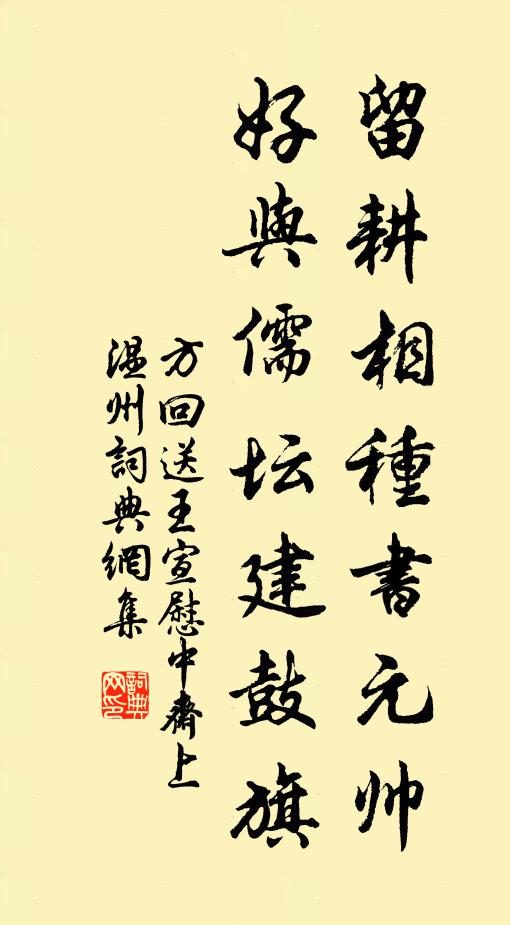 留耕相種書元帅
好與儒坛建鼓旗
方回送王宣慰中齋上
温州詞典網集
詞典网印